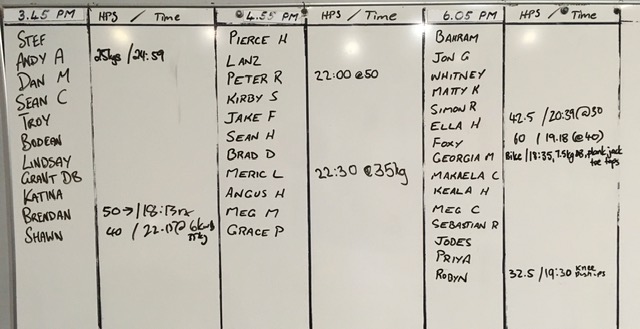 3.45 PM HPS / Time
STEF
ANDY A 25kgs / 24:59
DAN M
SEAN C
TROY
BODEAN
LINDSAY
GRANT DB
KATINA
BRENDAN 50 → / 18:13
SHAWN 40 /
4.55 PM HPS / Time
PIERCE H
LANZ
PETER R 22:00 @50
KIRBY S
JAKE F
SEAN H
BRAD D
MERIC L 22:30 @35kg
ANGUS H
MEG M
GRACE P
6.05 PM HPS / Time
BAHRAM
JON G
WHITNEY
MATTY K
SIMON R
ELLA H 42.5 / 20:39 (@30
FOXY 60 / 19.18 (@40)
GEORGIA M Bike / 18:35, 7.5kg DB, plank jack
toe taps
MAKAELA C
KEALA H
MEG C
SEBASTIAN R
JODES
PRIYA
ROBYN 32.5 / 19:30 KNEE
PUSH-UPS